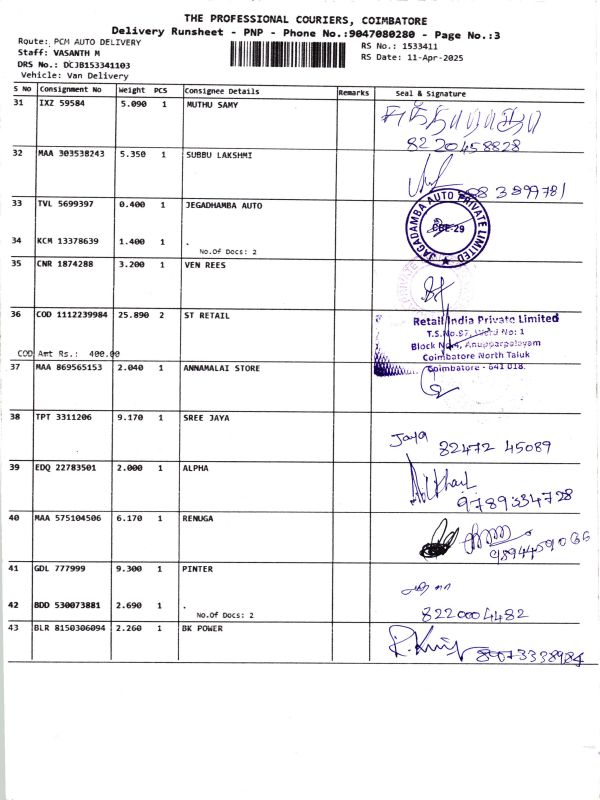 THE PROFESSIONAL COURIERS, COIMBATORE
Delivery Runsheet - PNP - Phone No.:9047080280 - Page No.:3
Route: PCM AUTO DELIVERY
Staff: VASANTH M
DRS No.: DCJB153341103
Vehicle: Van Delivery
RS No.: 1533411
RS Date: 11-Apr-2025
S No Consignment No Weight PCS Consignee Details Remarks Seal & Signature
31 IXZ 59584 5.090 1 MUTHU SAMY
8220458828
32 MAA 303538243 5.350 1 SUBBU LAKSHMI
33 TVL 5699397 0.400 1 JEGADHAMBA AUTO
JAGADAMBA AUTO PRIVATE LIMITED
CBE-29
34 KCM 13378639 1.400 1 .
No.Of Docs: 2
35 CNR 1874288 3.200 1 VEN REES
36 COD 1112239984 25.890 2 ST RETAIL
Retail India Private Limited
T.S.No.97, Word No: 1
Block No.4, Anupparpalayam
Coimbatore North Taluk
Coimbatore - 641 018.
COD Amt Rs.: 400.00
37 MAA 869565153 2.040 1 ANNAMALAI STORE
38 TPT 3311206 9.170 1 SREE JAYA
Jaya 82472 45089
39 EDQ 22783501 2.000 1 ALPHA
9789334728
40 MAA 575104506 6.170 1 RENUGA
41 GDL 777999 9.300 1 PINTER
42 BDD 530073881 2.690 1 .
No.Of Docs: 2
8220004482
43 BLR 8150306094 2.260 1 BK POWER